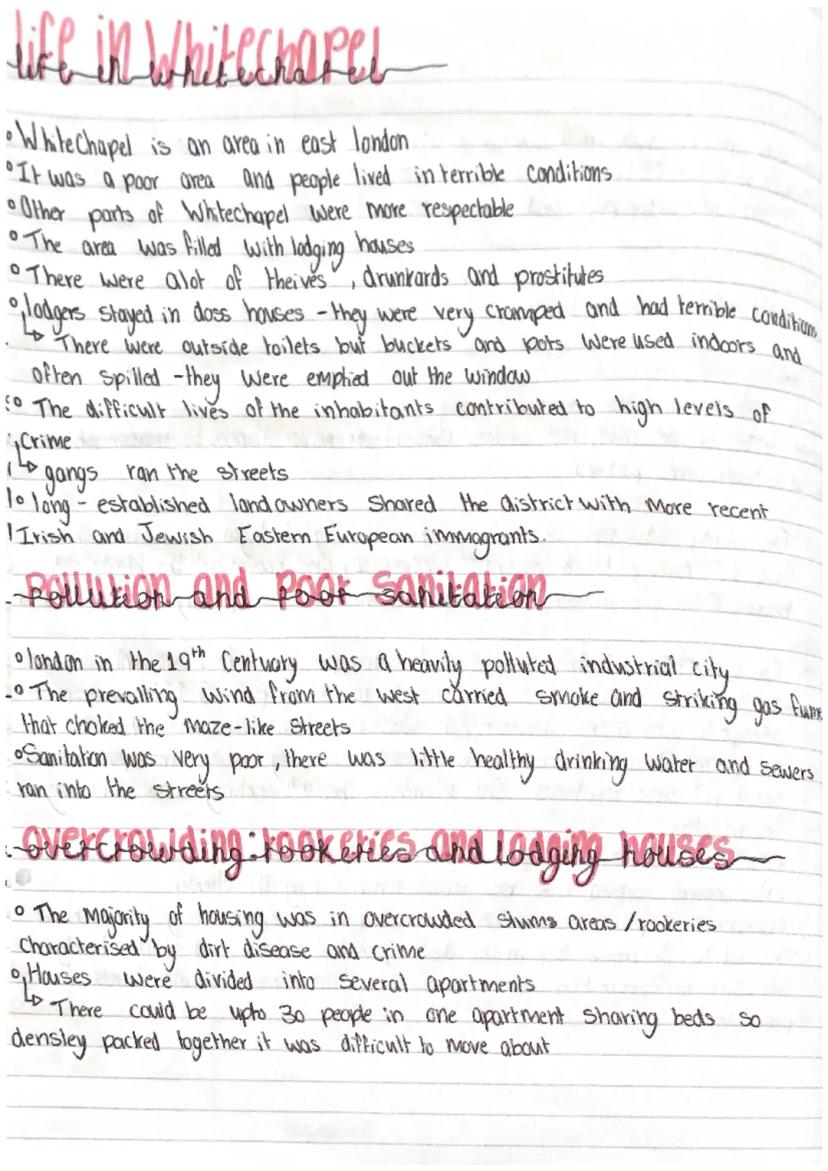 life in Whitechapel
• WhiteChapel is an area in east london
• It was a poor area and people lived in terrible conditions
• Other parts of Whitechapel were more respectable
• The area was filled with lodging houses
• There were alot of theives , drunkards and prostitutes
• lodgers stayed in doss houses - they were very cramped and had terrible conditions
↳ There were outside toilets but buckets and pots were used indoors and
often spilled - they were emptied out the window
• The difficult lives of the inhabitants contributed to high levels of
crime
↳ gangs ran the streets
• long - established landowners shared the district with more recent
Irish and Jewish Eastern European immagrants.
Pollution and Poor Sanitation
• london in the 19th Centuary was a heavily polluted industrial city
• The prevailing wind from the west carried smoke and striking gas fume
that choked the maze-like streets
• Sanitation was very poor , there was little healthy drinking water and sewers
ran into the streets
overcrowding: rookeries and lodging houses
• The Majority of housing was in overcrowded slums areas / rookeries
characterised by dirt disease and crime
• Houses were divided into several apartments
↳ There could be upto 30 people in one apartment sharing beds so
densley packed together it was difficult to move about